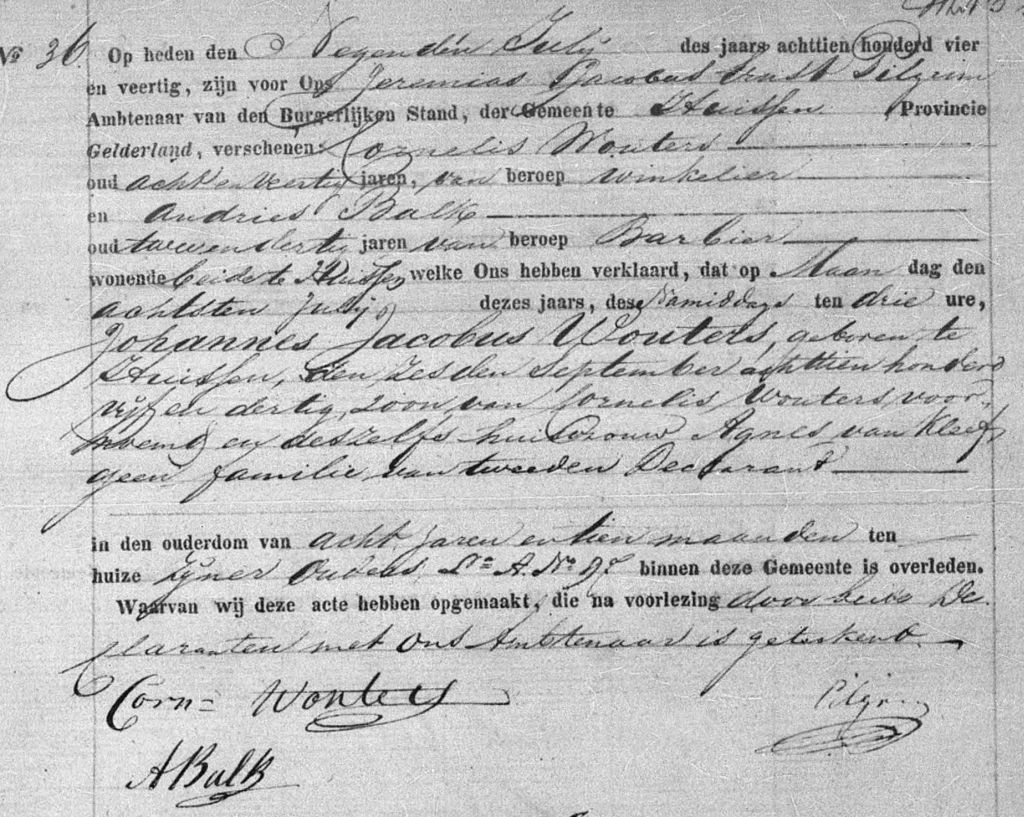 Nº 36 Op heden den Negenden Julij des jaars achttien honderd vier
en veertig, zijn voor Ons Jeremias Jacobus Ernst Pilgrim
Ambtenaar van den Burgerlijken Stand, der Gemeente Huissen Provincie
Gelderland, verschenen: Cornelis Wouters
oud acht en veertig jaren, van beroep winkelier
en Andries Balk
oud twee en dertig jaren van beroep Barbier
wonende beide te Huissen welke Ons hebben verklaard, dat op Maan dag den
achtsten Julij dezes jaars, des Namiddags ten drie ure,
Johannes Jacobus Wouters, geboren te
Huissen, den zesden September achttien honderd
vijf en dertig, zoon van Cornelis Wouters, voor-
noemd en deszelfs huisvrouw Agnes van Kleef,
geen familie van tweeden Declarant
in den ouderdom van acht jaren en tien maanden ten
huize zijner Ouders, La A. No binnen deze Gemeente is overleden.
Waarvan wij deze acte hebben opgemaakt, die na voorlezing door beide De-
claranten met Ons Ambtenaar is geteekend.
Corn= Wouters Pilgrim
A Balk